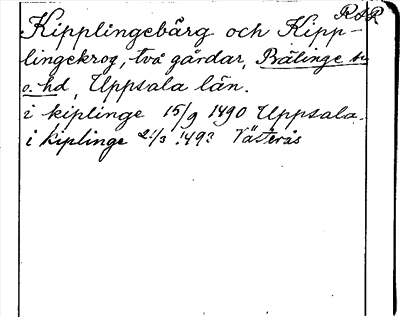 R&R
Kipplingebärg och Kipp-
lingekrog, två gårdar, Bälinge sn
o. hd, Uppsala län.
i kiplinge 15/9 1490 Uppsala.
i kiplinge 21/3 1493 Västerås